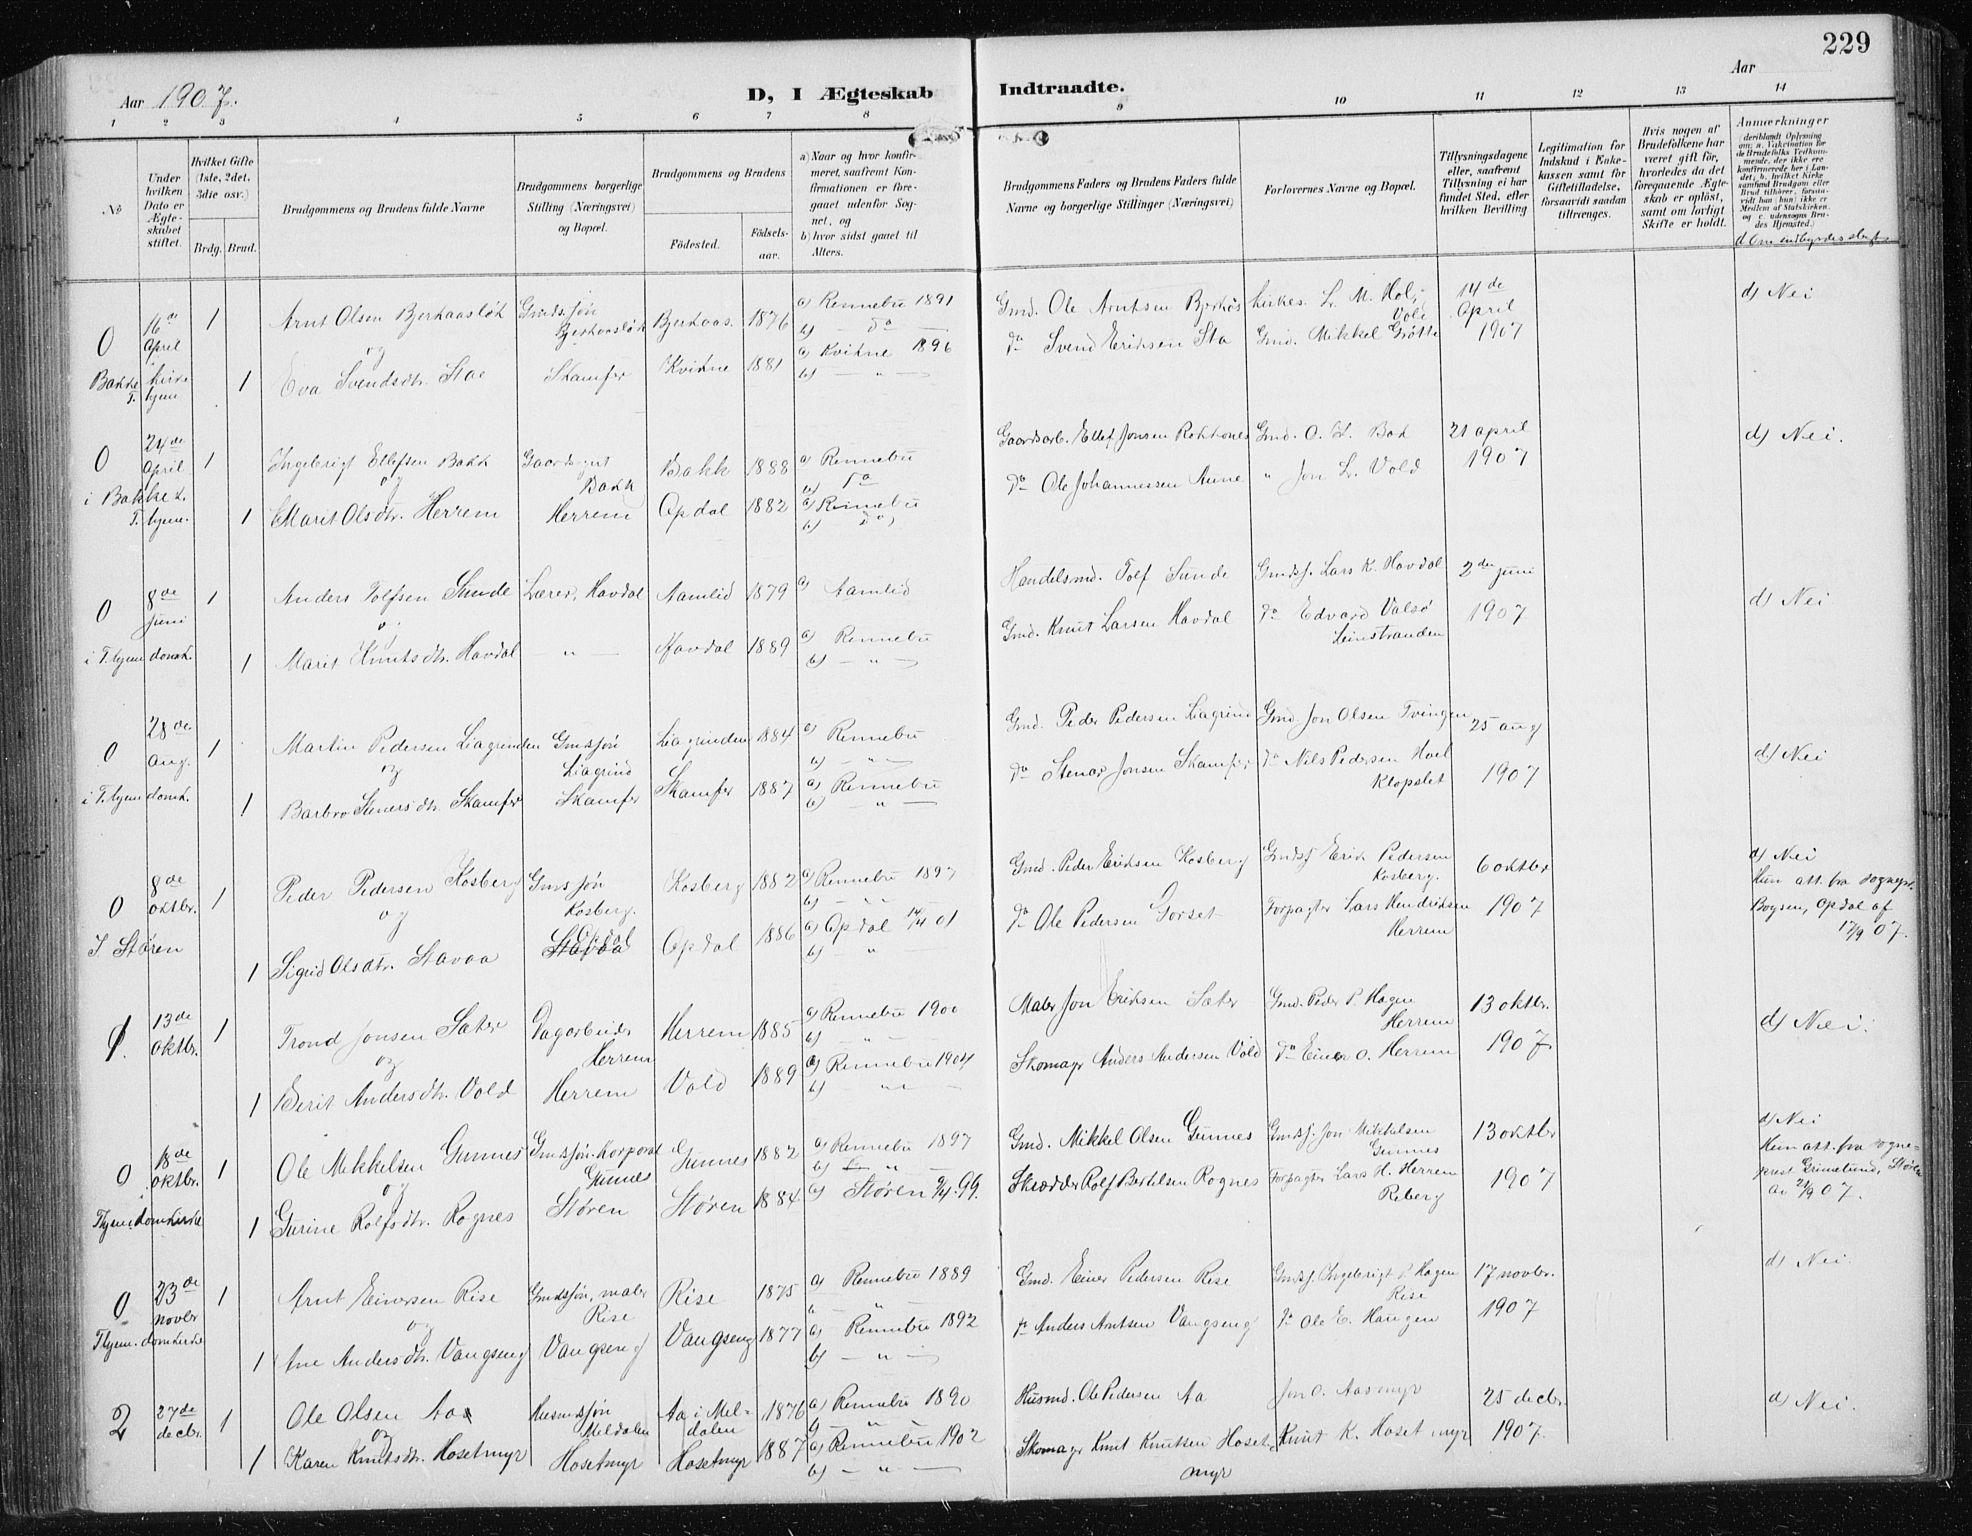 229
Aar 1907.
D, I Ægteskab Indtraadte.
Aar
1 2 3 4 5 6 7 8 9 10 11 12 13 14
No
Under hvilken Dato er Ægteskabet stiftet.
Hvilket Gifte (1ste, 2det, 3die osv.)
Brdg. Brud.
Brudgommens og Brudens fulde Navne
Brudgommens borgerlige Stilling (Næringsvei) og Bopæl.
Brudgommens og Brudens
Födested. Födsels-aar.
a) Naar og hvor konfir-
meret, saafremt Kon-
firmationen er fore-
gaaet udenfor Sog-
net, og
b) hvor sidst gaaet til
Alters.
Brudgommens Faders og Brudens Faders fulde
Navne og borgerlige Stillinger (Næringsvei)
Forlovernes Navne og Bopæl.
Tillysningsdagene
eller, saafremt
Tillysning ei har
fundet Sted, efter
hvilken Bevilling
Legitimation for
Indskud i Enke-
kassen samt for
Giftetilladelse,
forsaavidt saadan
tiltrænges.
Hvis nogen af
Brudefolkene har
været gift för,
hvorledes da det
foregaaende Ægte-
skab er oplöst,
samt om lovligt
Skifte er holdt.
Anmærkninger
(deriblandt Oplysning
om: a. Vakcination for
de Brudefolks Vedkom-
mende, der ikke ere
konfirmerede her i Lan-
det; b. hvilket Kirke
samfund Brudgom eller
Brud tilhörer, forsaa-
vidt han (hun) ikke er
Medlem af Statskirken,
og c. udensogns Bru-
des Hjemsted.)
0 16de April 1 Arnt Olsen Bjerkaasløk Gmdssøn Bjerkaasløk Bjerkaas. 1876 a) Rennebu 1891 b) do Gmd. Ole Arntsen Bjerkås kirkes. L. M. Hol, Vold 14de April 1907 d) Nei
og
Bakke kirke 1 Eva Svendsdtr. Stae Skamfer Kvikne 1881 a) Kvikne 1896 b) " do Svend Eriksen Sta Gmd. Mikkel Grøtte
0 24de April 1 Ingebrigt Ellefsen Bakk Gaardsgut Bakk Bakk 1888 a) Rennebu b) do Gaardsarb. Ellef Jonsen 21 april 1907 d) Nei.
og
i Bakke k. T.hjem. 1 Marit Olsdtr. Herrem Herrem Opdal 1882 a) Rennebu b) do do Ole Johannessen Aune " Jon L. Vold
0 8de juni 1 Anders Tolfsen Sunde Lærer, Havdal Aamlid 1879 a) Aamlid Handelsmd. Tolf Sunde Gmdss. Lars K. Havdal 2den juni 1907 d) Nei
i T.hjem domk. 1 Marit Knutsdtr. Havdal " Havdal 1889 a) Rennebu b) " Gmd. Knut Larsen Havdal do Edvard Valsø Leinstranden
0 28de aug. 1 Martin Pedersen Liagrinden Gmdssøn Liagrind Liagrinden 1884 a) Rennebu b) " Gmd. Peder Pedersen Liagrind Gmd. Jon Olsen Tvingen 25 aug 1907 d) Nei
og
i T.hjem domk. 1 Barbro Stenersdtr. Skamfer Skamfer Skamfer 1887 a) Rennebu b) " do Stenar Jonsen Skamfer do Nils Pedersen Hoel Klopslet
0 8de oktbr. 1 Peder Pedersen Kosberg Gmdssøn Kosberg. Kosberg 1882 a) Rennebu 1897 b) " Gmd. Peder Eriksen Kosberg Gmdss Erik Pedersen Kosberg. 6 oktbr 1907 d) Nei
og
I Støren 1 Sigrid Olsdtr. Stavaa Opdal Opdal 1886 a) Opdal 14/4 01 b) " do Ole Pedersen Gorset Forpagter Lars Hendriksen Herrem Hun att. fra sognepr. Boysen, Opdal af 17/9 07.
1. 13de oktbr. 1 Trond Jonsen Sæter Dagarbeider Herrem Herrem 1885 a) Rennebu 1900 b) " Maler Jon Eriksen Sæter Gmd. Peder P. Hagen Herrem 13 oktbr. 1907. d) Nei.
og
1 Berit Andersdtr. Vold Herrem Vold 1889 a) Rennebu 1904 b) " Skomagr Anders Andersen Vold do Einar O. Herrem
0 18de oktbr. 1 Ole Mikkelsen Gunnes Gmdssøn. Korporal Gunnes Gunnes 1882 a) Rennebu 1897 b) " Gmd. Mikkel Olsen Gunnes Gmdss. Jon Mikkelsen Gunnes 13 oktbr 1907 d) Nei
og
Thjem domkirke 1 Gurine Rolfsdtr. Rognes Støren Støren 1884 a) Støren 9/4 99. Skrædder Rolf Bertelsen Rognes Forpagter Lars H. Herrem Reberg Hun att. fra sogneprest Grimelund, Støren av 2/9 07.
0 23de novbr 1 Arnt Einersen Rise Gmdssøn, maler Rise Rise 1875 a) Rennebu 1889 " Gmd. Einer Pedersen Rise Gmdss. Ingebrigt P. Hagen Rise 17 novbr. 1907 d) Nei.
og
Thjem. domkirke 1 Ane Andersdtr. Vangseng Vangseng Vangseng 1877 a) Rennebu 1892 b) " do Anders Arntsen Vangseng do Ole E. Haugen
2 27de decbr. 1 Ole Olsen Aa Husmdssøn Meldalen Aa i Meldalen 1876 a) Rennebu 1890 b) " Husmd. Ole Pedersen Aa Jon O. Aasmyr 25 decbr 1907. d) Nei.
og
1 Karen Knutsdtr. Hosetmyr Hosetmyr Hosetmyr 1887 a) Rennebu 1902 b) " Skomagr Knut Knutsen Hosetmyr Knut K. Hosetmyr